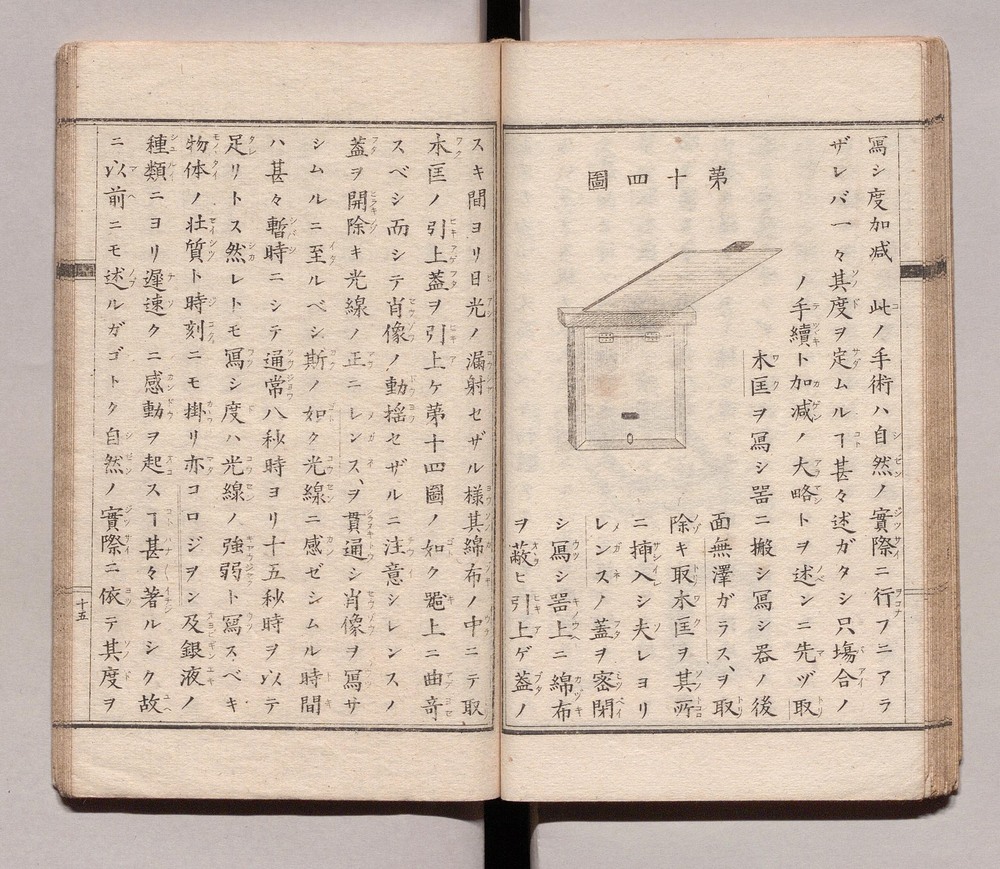 冩シ度加減　此ノ手術ハ自然ノ實際ニ行フニアラ
ザレバ一々其度ヲ定ムルヿ甚々述ガタシ只塲合ノ
ノ手續ト加減ノ大略トヲ述ンニ先ヅ取
木匡ヲ冩シ噐ニ搬シ冩シ器ノ後
面無澤ガラス、ヲ取
除キ取木匡ヲ其所
ニ挿入シ夫レヨリ
レンスノ蓋ヲ密閉
シ冩シ噐上ニ綿布
ヲ蔽ヒ引上ゲ葢ノ
第十四圖
スキ間ヨリ日光ノ漏射セザル様其綿布ノ中ニテ取
木匡ノ引上蓋ヲ引上ケ第十四圖ノ如ク噐上ニ曲奇
スベシ而シテ肖像ノ動揺セザルニ注意シレンスノ
蓋ヲ開除キ光線ノ正ニレンス、ヲ貫通シ肖像ヲ冩サ
シムルニ至ルベシ斯ノ如ク光線ニ感ゼシムル時間
ハ甚々暫時ニシテ通常八秒時ヨリ十五秒時ヲ以テ
足リトス然レトモ冩シ度ハ光線ノ強弱ト冩スベキ
物体ノ壮質ト時刻ニモ掛リ亦コロジヲン及銀液ノ
種類ニヨリ遲速クニ感動ヲ起スヿ甚々著ルシク故
ニ以前ニモ述ルガゴトク自然ノ實際ニ依テ其度ヲ
十五